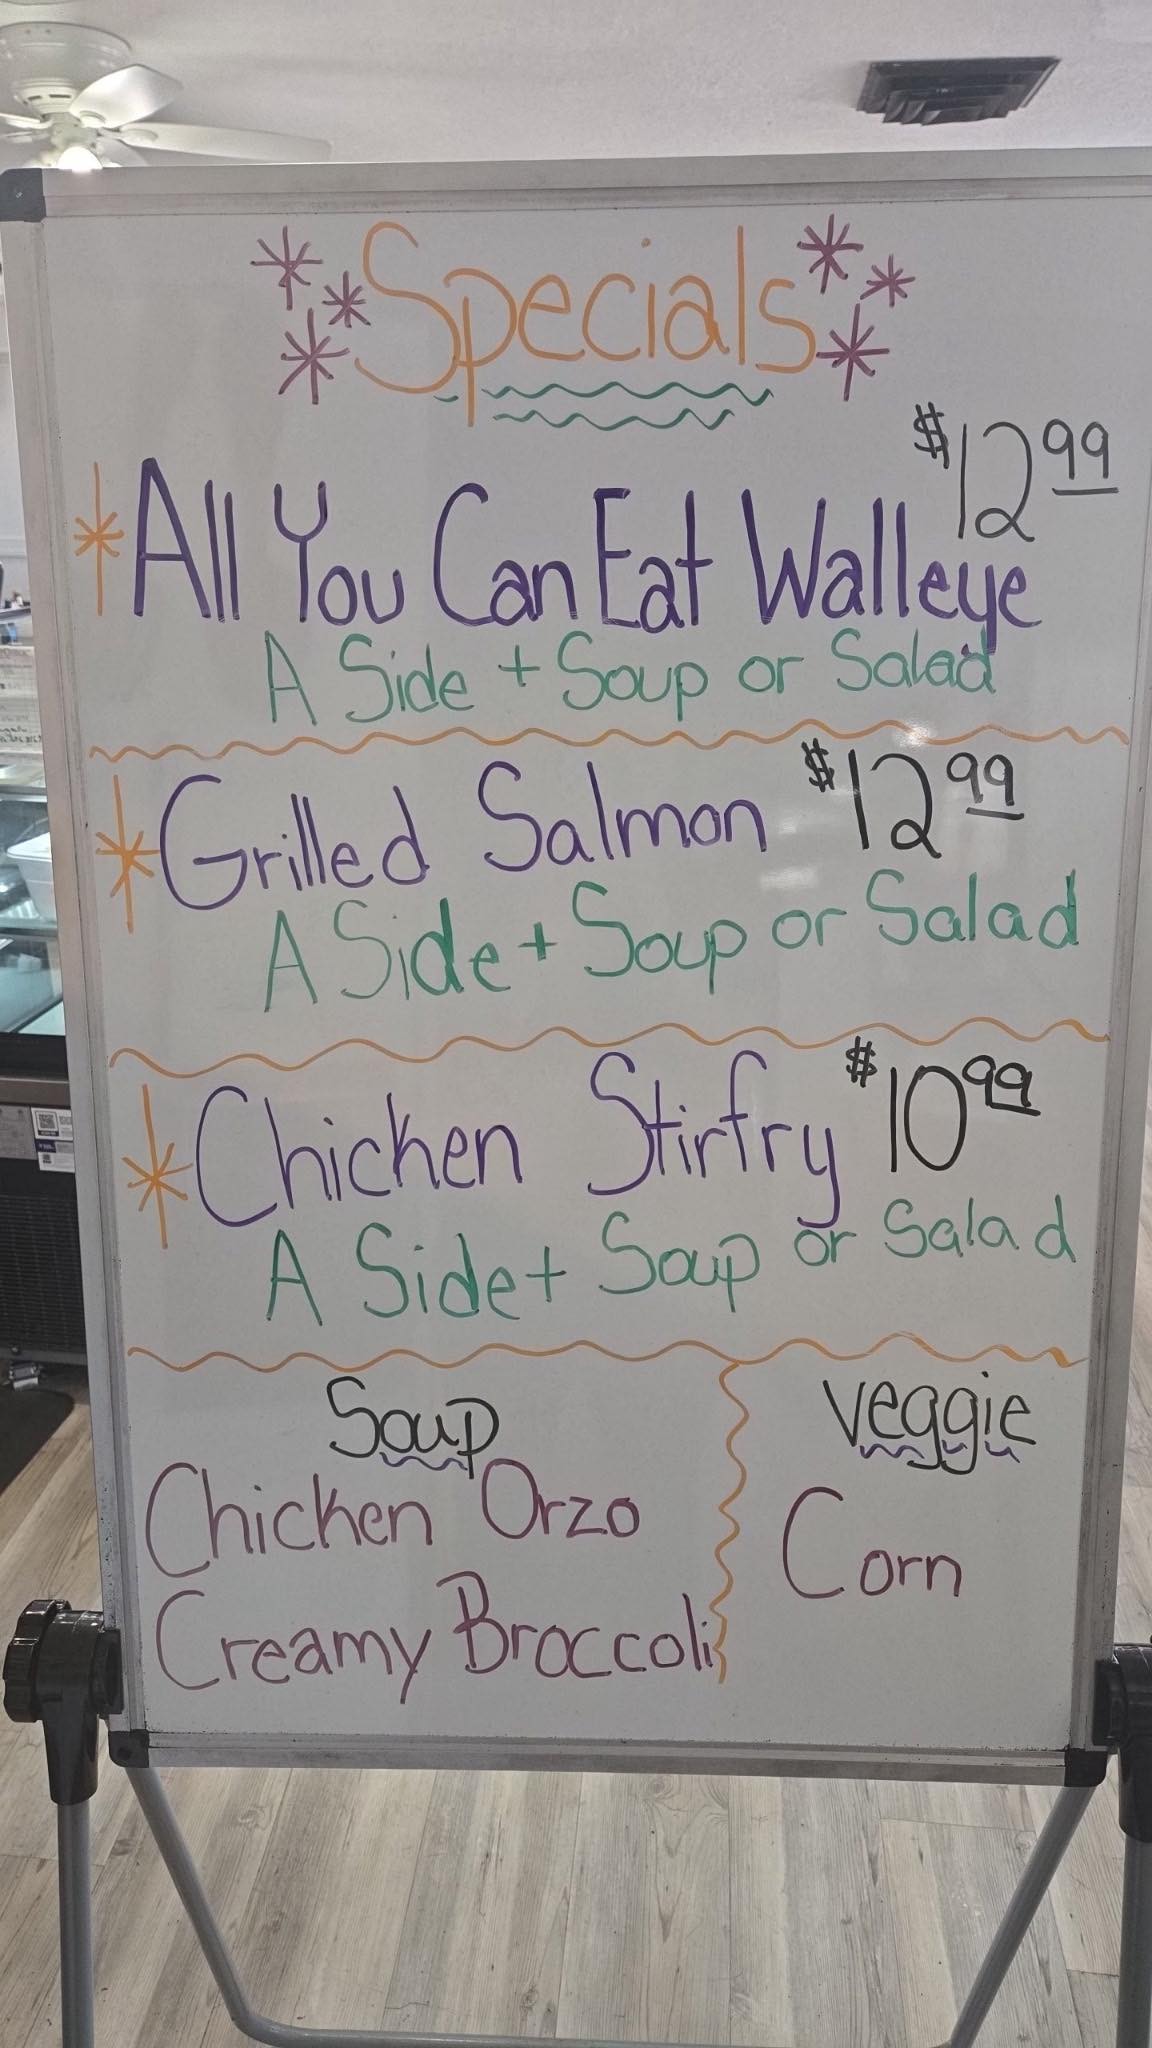 Specials
$12 99
All You Can Eat Walleye
A Side + Soup or Salad
Grilled Salmon $12 99
A Side + Soup or Salad
Chicken Stirfry $10 99
A Side + Soup or Salad
Soup
Chicken Orzo
Creamy Broccoli
Veggie
Corn